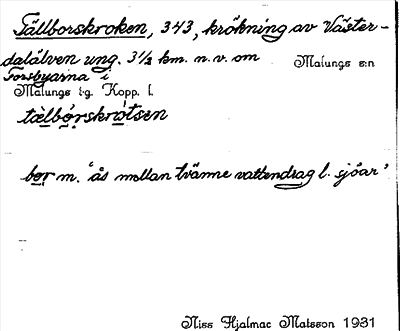 Tällborskroken, 343, krökning av Väster-
dalälven ung. 3½ km. n.v. om Malungs s:n
Forsbyarna i
Malungs t:g. Kopp. l.
tælbo̩rskrotsen
bo̩r m. 'ås mellan tvänne vattendrag l. sjöar'
Niss Hjalmar Matsson 1931